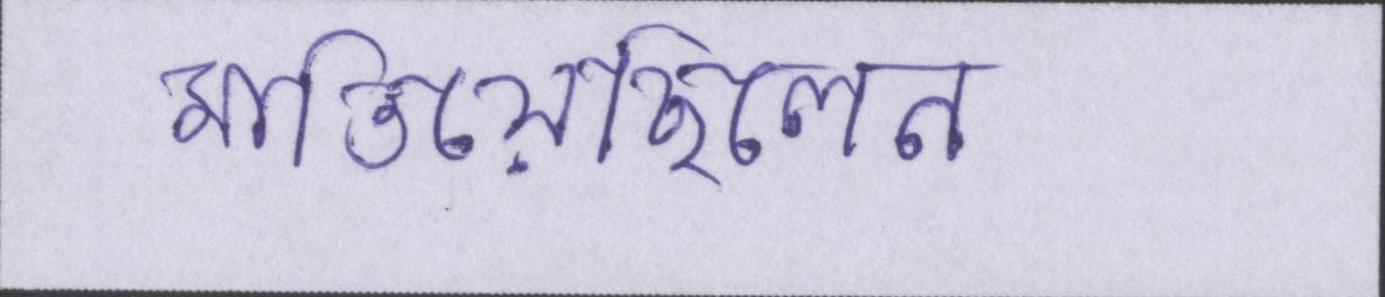 মাতিয়েছিলেন